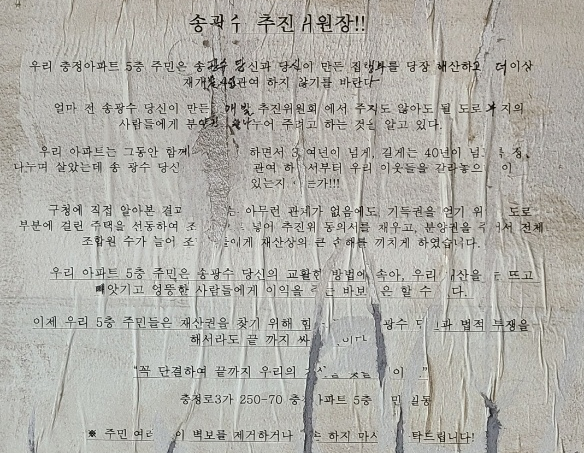 송광수 추진위원장!!
우리 충정아파트 5층 주민은 송광수 당신과 당신이 만든 집행부를 당장 해산하고 더이상
재개발 관여 하지 않기를 바란다
얼마 전 송광수 당신이 만든 개발 추진위원회 에서 주지도 않아도 될 도로부지의
사람들에게 나누어 주려고 하는 것을 알고 있다.
우리 아파트는 그동안 함께 하면서 여년이 넘게, 길게는 40년이 넘
나누며 살았는데 송 광수 당신 관여 하 서부터 우리 이웃들을 갈라놓으 이
있는지 는가!!!
구청에 직접 알아본 결과 는 아무런 관계가 없음에도, 기득권을 얻기 위 도로
부분에 걸린 주택을 선동하여 조 넣어 추진위 동의서를 채우고, 분양권을 주 서 전체
조합원 수가 늘어 조 들에게 재산상의 큰 손해를 끼치게 하였습니다.
우리 아파트 5층 주민은 송광수 당신의 교활한 방법에 속아, 우리 산을 뜨고
빼앗기고 엉뚱한 사람들에게 이익을 주는 바보 은 할 수 다.
이제 우리 5층 주민들은 재산권을 찾기 위해 힘 광수 과 법적 투쟁을
해서라도 끝 까지 싸 이다
"꼭 단결하여 끝까지 우리의 이 "
충정로3가 250-70 충정아파트 5층 민 일동
※ 주민 여러 이 벽보를 제거하거나 손 하지 마시 탁드립니다!